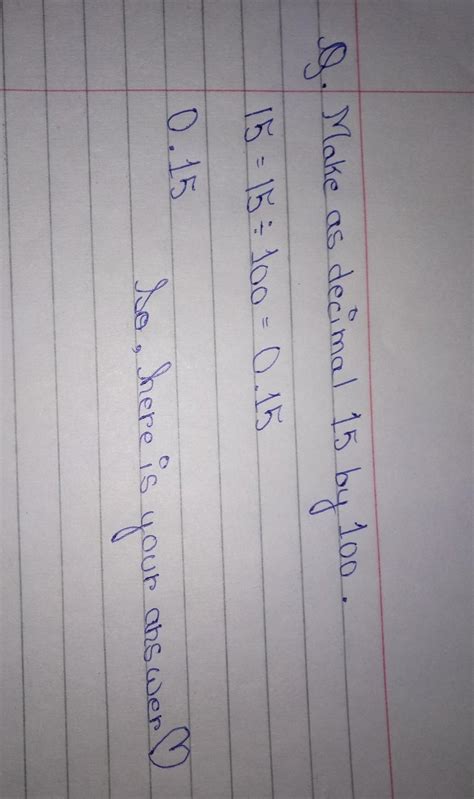 Q. Make as decimal 15 by 100.
15 = 15 ÷ 100 = 0.15
0.15
So, here is your answer♡